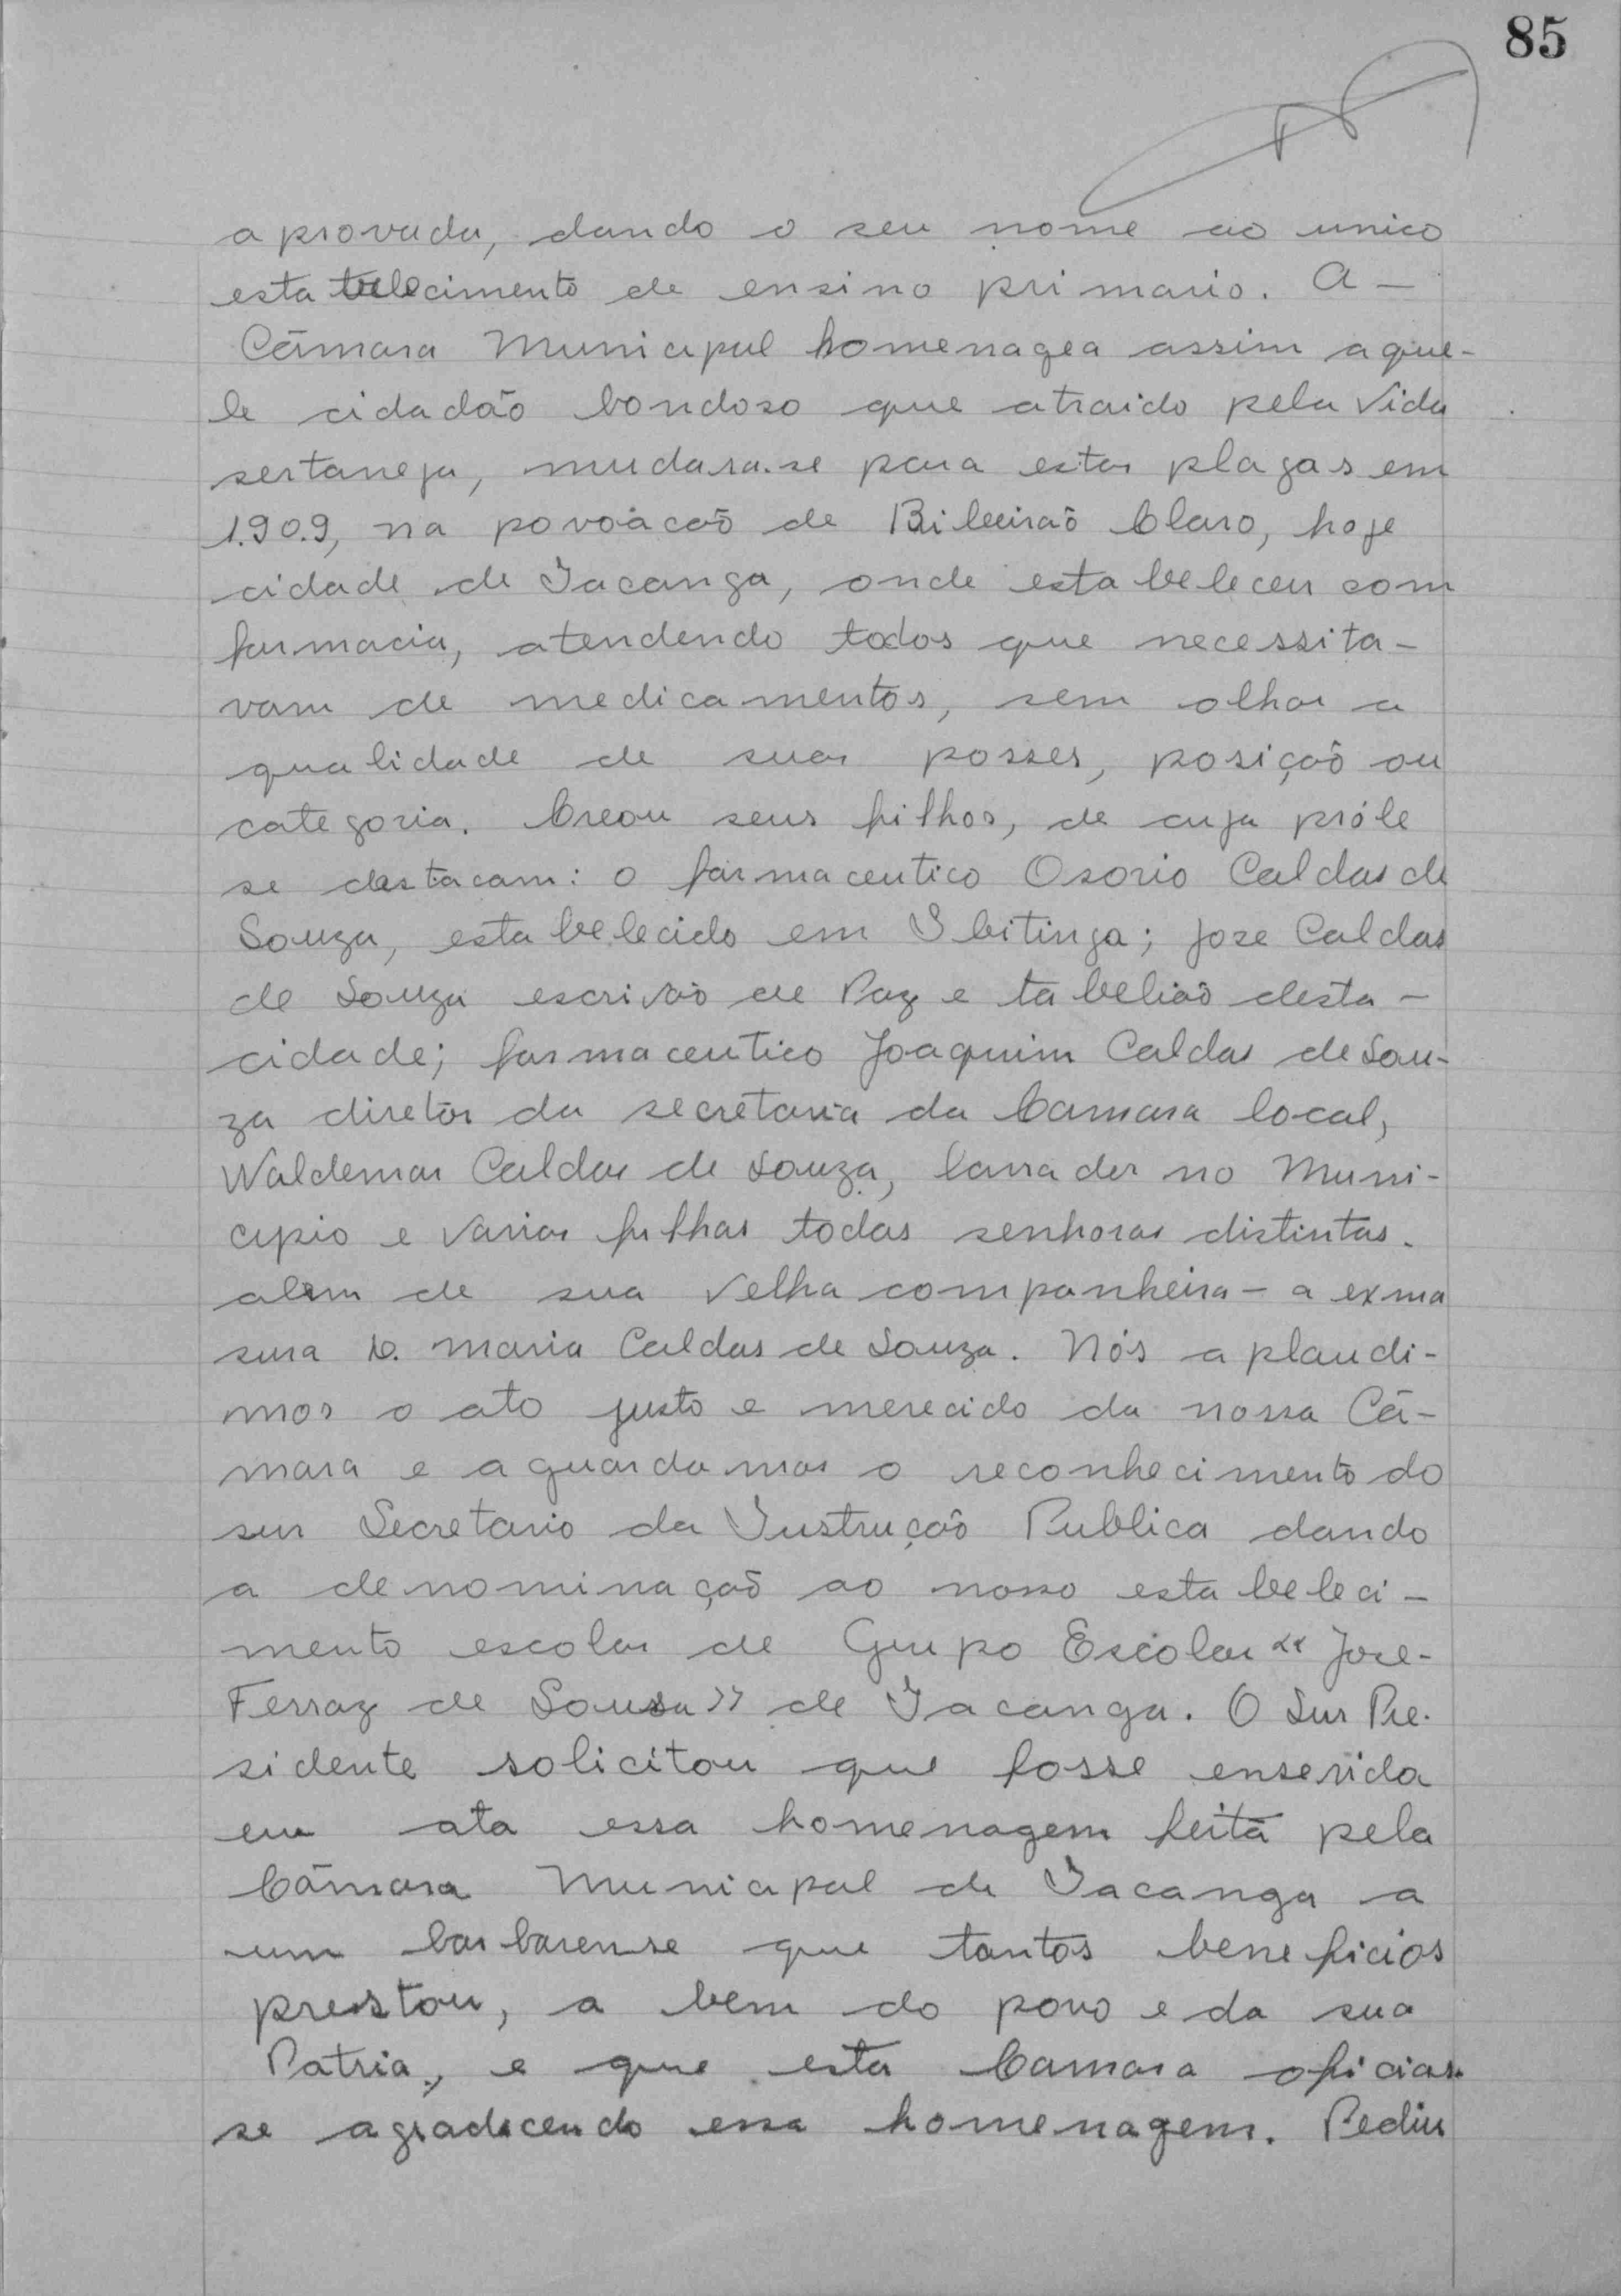 85
aprovada, dando o seu nome ao unico
estabelecimento de ensino primario. A -
Câmara Municipal homenagea assim aque-
le cidadão bondoso que atraido pela vida
sertaneja, mudara-se para estas plagas em
1.909, na povoàcaõ de Ribeiraõ Claro, hoje
cidade de Iacanga, onde estabeleceu com
farmacia, atendendo todos que necessita-
vam de medicamentos, sem olhar a
qualidade de suas posses, posiçaõ ou
categoria. Creou seus filhos, de cuja próle
se destacam: o farmaceutico Osorio Caldas de
Souza, estabelecido em Ibitinga; Jose Caldas
de Souza escrivaõ de Paz e tabeliaõ desta -
cidade; farmaceutico Joaquim Caldas de Sou-
za diretor da secretaria da Camara local,
Waldemar Caldas de Souza, lavrador no Muni-
cipio e varias filhas todas senhoras distintas.
alem de sua velha companheira - a exma
snra D. Maria Caldas de Souza. Nós aplaudi-
mos o ato justo e merecido da nossa Câ-
mara e aguardamos o reconhecimento do
snr Secretario da Instruçaõ Publica dando
a denominaçaõ ao nosso estabeleci-
mento escolar de Grupo Escolar « Jose-
Ferraz de Sousa » de Iacanga. O Snr Pre-
sidente solicitou que fosse enserida
em ata essa homenagem feita pela
Câmara Municipal de Iacanga a
um barbarense que tantos beneficios
prestou, a bem do povo e da sua
Patria, e que esta Camara oficias-
se agradecendo essa homenagem. Pediu